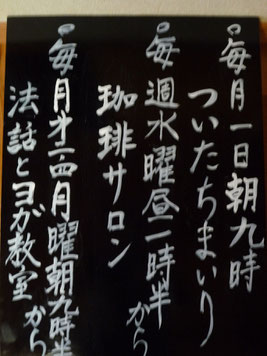 ○毎月一日朝九時
ついたちまいり
○毎週水曜昼一時半から
珈琲サロン
○毎月才二四月曜朝九時半から
法話とヨガ教室